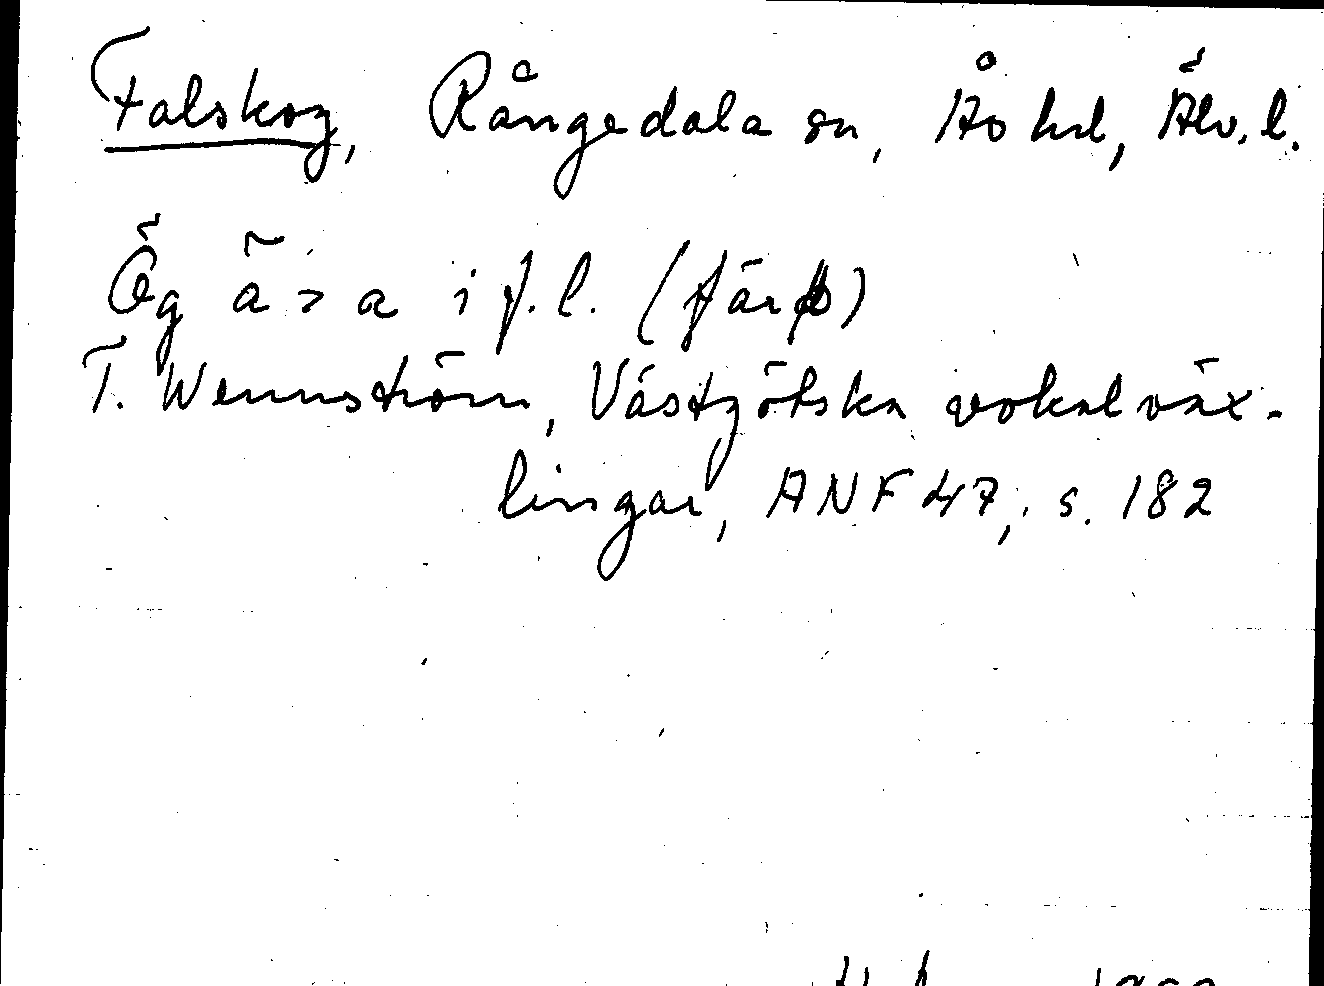 Falskog, Rångedala sn, Ås hd, Älv. l.
Ög ä > a i f.l. (färþ)
T. Wennström, Västgötska vokalväx-
lingar, ANF 47, s. 182